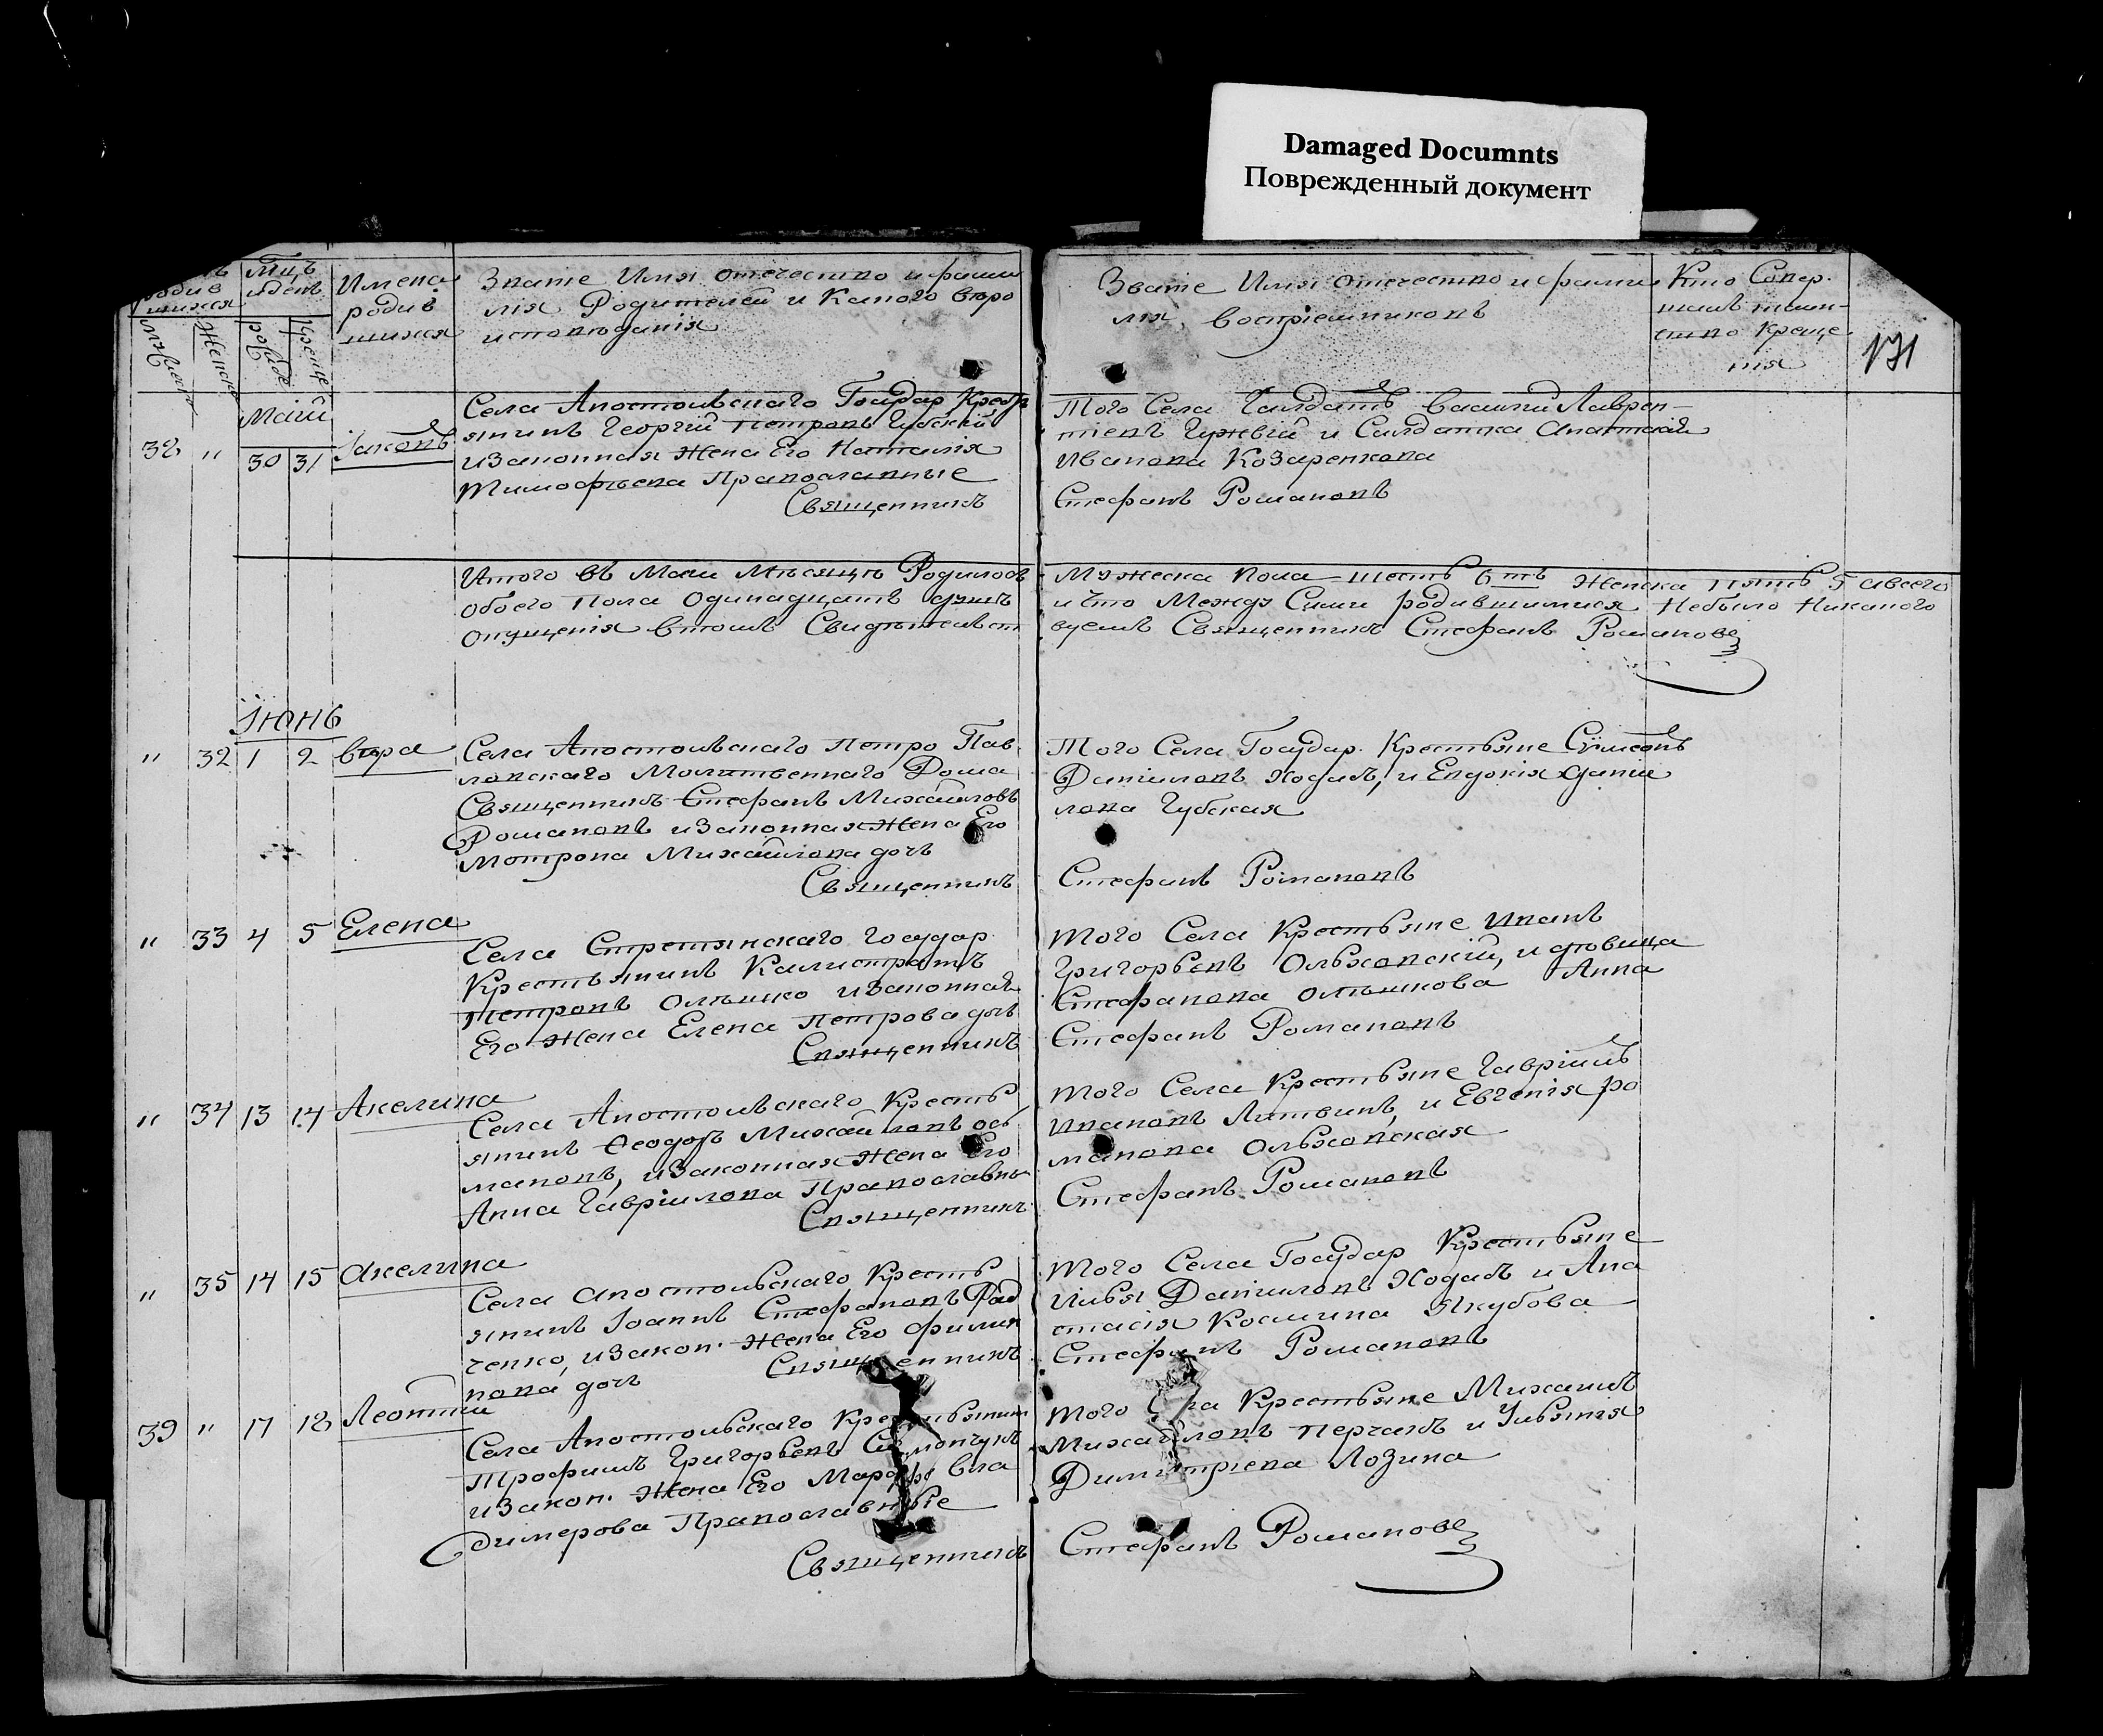 Damaged Documnts
Поврежденный документ
родив
шихся
Мцъ
идень
Имена
родив
шихся
Звание Имя отечество и фами
лія Родителей и Какого веро
исповеданія
Женска
Звание Имя отечество и фами
лія воспріемниковъ
Кто Совер.
шилъ таин-
ство креще
нія
131
Маій
32 " 30 31 Іаковъ
Села Апостольскаго Государ Кресть
янинъ Георгій Петровъ Губскій
и Законная Жена Его Наталія
Тимофѣева Православные
Священникъ
Того Села Салдатъ Василій Лаврен-
тіевъ Гужвій и Салдатка
Иванова Козаренкова
Стефанъ Романовъ
Итого въ Маіи Мѣсяцѣ Родилось
обоего пола Одинадцать душъ
опущенія втомъ Свидѣтельст
Мужеска пола шесть 6ть Женска пять 5 авсего
и что Между Сими родившимися Небыло Никакого
вуемъ Священникъ Стефанъ Романовъ
Іюнь
" 32 1 2 Вѣра
Села Апостольскаго Петро Пав
ловскаго Молитвеннаго Дома
Священникъ Стефанъ Михайловъ
Романовъ и Законная Жена Его
Мотрона Михайлова дочь
Священникъ
Того Села Государ. Крестьяне Сѵмеонъ
Даніиловъ Ходакъ, и Евдокія Даніи
лова Губская
Стефанъ Романовъ
" 33 4 5 Елена
Села Стретинскаго Государ
Крестьянинъ Калистратъ
Петровъ Олѣшко и Законная
Его Жена Елена Петрова дочь
Священникъ
Того Села Крестьяне Иванъ
Григорьевъ Ольховскій, и дювица
Стефанова Олѣшкова Анна
Стефанъ Романовъ
" 34 13 14 Акелина
Села Апостольскаго Кресть
янинъ Ѳеодоръ Михайловъ Ось
мановъ, и Законная Жена Его
Анна Гавріилова Православны
Священникъ
Того Села Крестьяне Гавріилъ
Ивановъ Литвинъ, и Евгенія Ро
манова Ольховская
Стефанъ Романовъ
" 35 14 15 Акелина
Села Апостольскаго Кресть
янинъ Іоаннъ Стефановъ Рад
ченко, и Закон. Жена Его Филип
пова дочь
Священникъ
Того Села Государ Крестьяне
Илья Даніиловъ Ходакъ и Ана
стасія Космина Якубова
Стефанъ Романовъ
39 " 17 18 Леонтій
Села Апостольскаго Крестьянин
Трофимъ Григорьевъ
и Закон. Жена Его Марфа Вла
димерова Православные
Священникъ
Того Села Крестьяне Михаилъ
Михайловъ Перчакъ и Ульянія
Димитріева Лозина
Стефанъ Романовъ